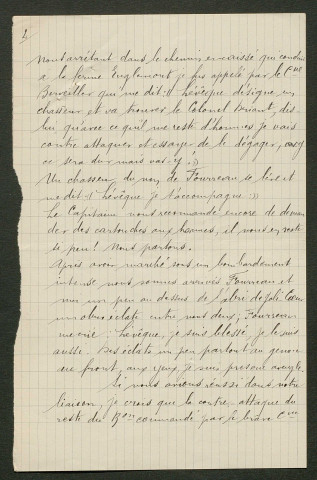 2)
Nous arrêtant dans le chemin encaissé qui conduit
a la ferme Englemont je fus appelé par le Cne
Berveiller qui me dit : "Lhévêque désigne un
chasseur et va trouver le Colonel Driant, dis
lui qu'avec ce qu'il me reste d'hommes je vais
contre attaquer et essayer de le dégager,
ce sera dur mais vas-y."
Un chasseur du nom de Fourreau se lève et
me dit "Lhévêque je t'accompagne"
Le Capitaine nous recommande encore de deman
der des cartouches aux hommes, il nous en reste
si peu ! Nous partons.
Après avoir marché sous un bombardement
intense nous sommes arrivés Fourreau et
moi un peu au dessus de l'abri de Joli Coeur
un obus éclate entre nous deux ; Fourreau
me crie : Lhévêque, je suis blessé, je le suis
aussi. Des éclats un peu partout au genou
au front, aux yeux je suis presque aveugle.
Si nous avions réussi dans notre
liaison, je crois que la contre-attaque du
reste du Bon commandé par le brave Cne